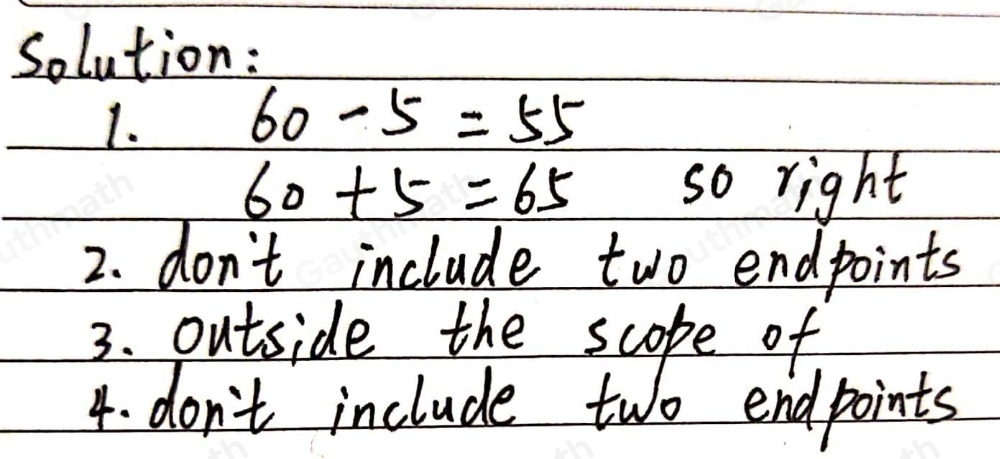 Solution:
1. 60 - 5 = 55
60 + 5 = 65 so right
2. don't include two endpoints
3. outside the scope of
4. don't include two endpoints